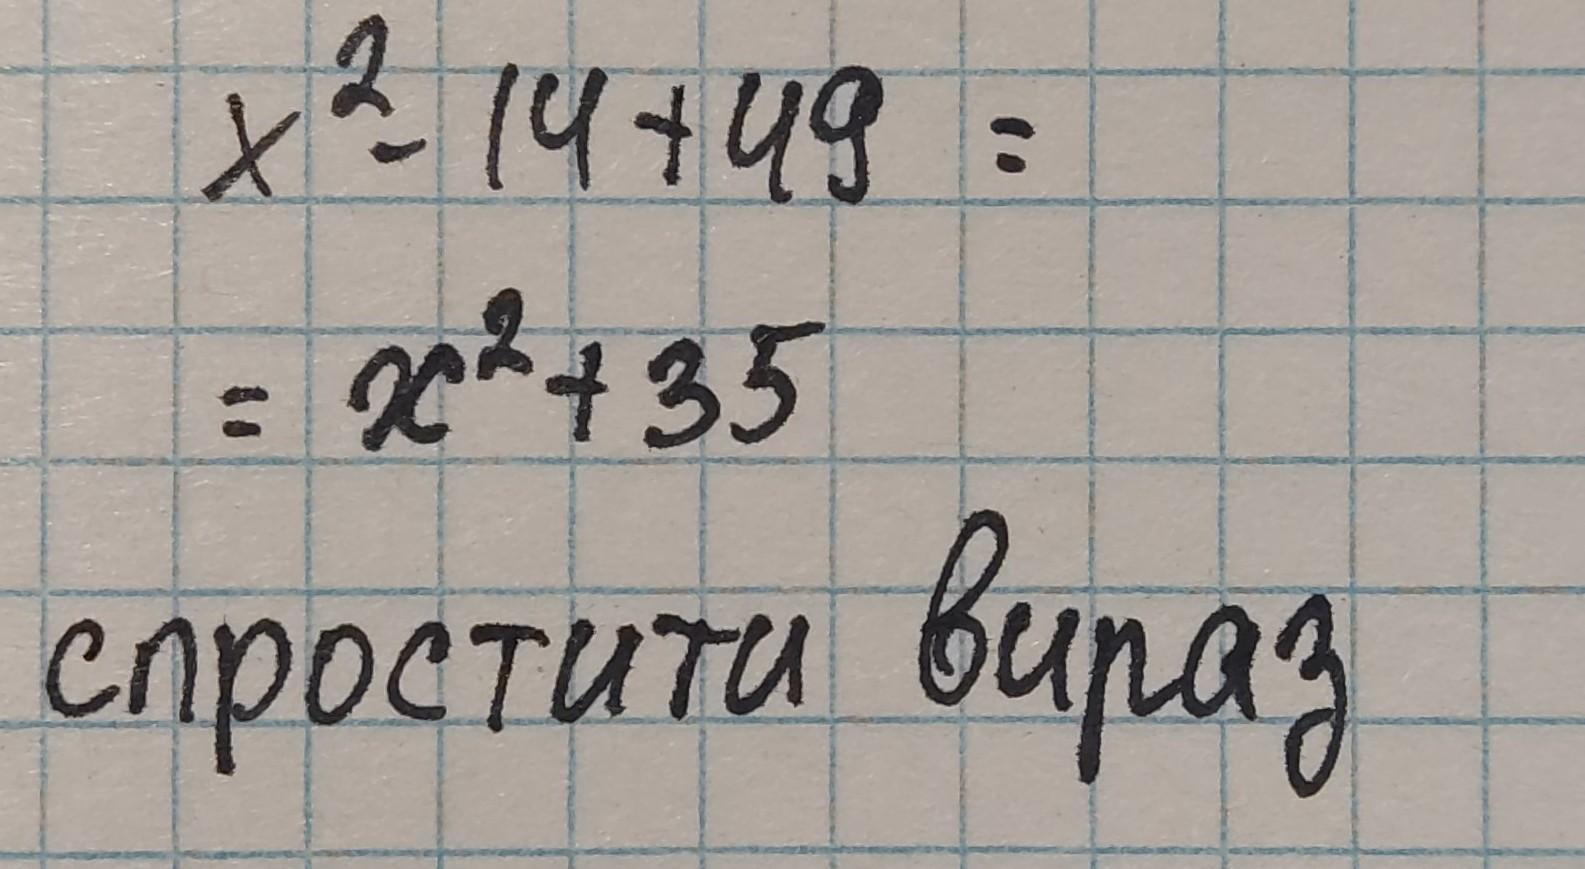 x² - 14 + 49 =
= x² + 35
спростити вираз